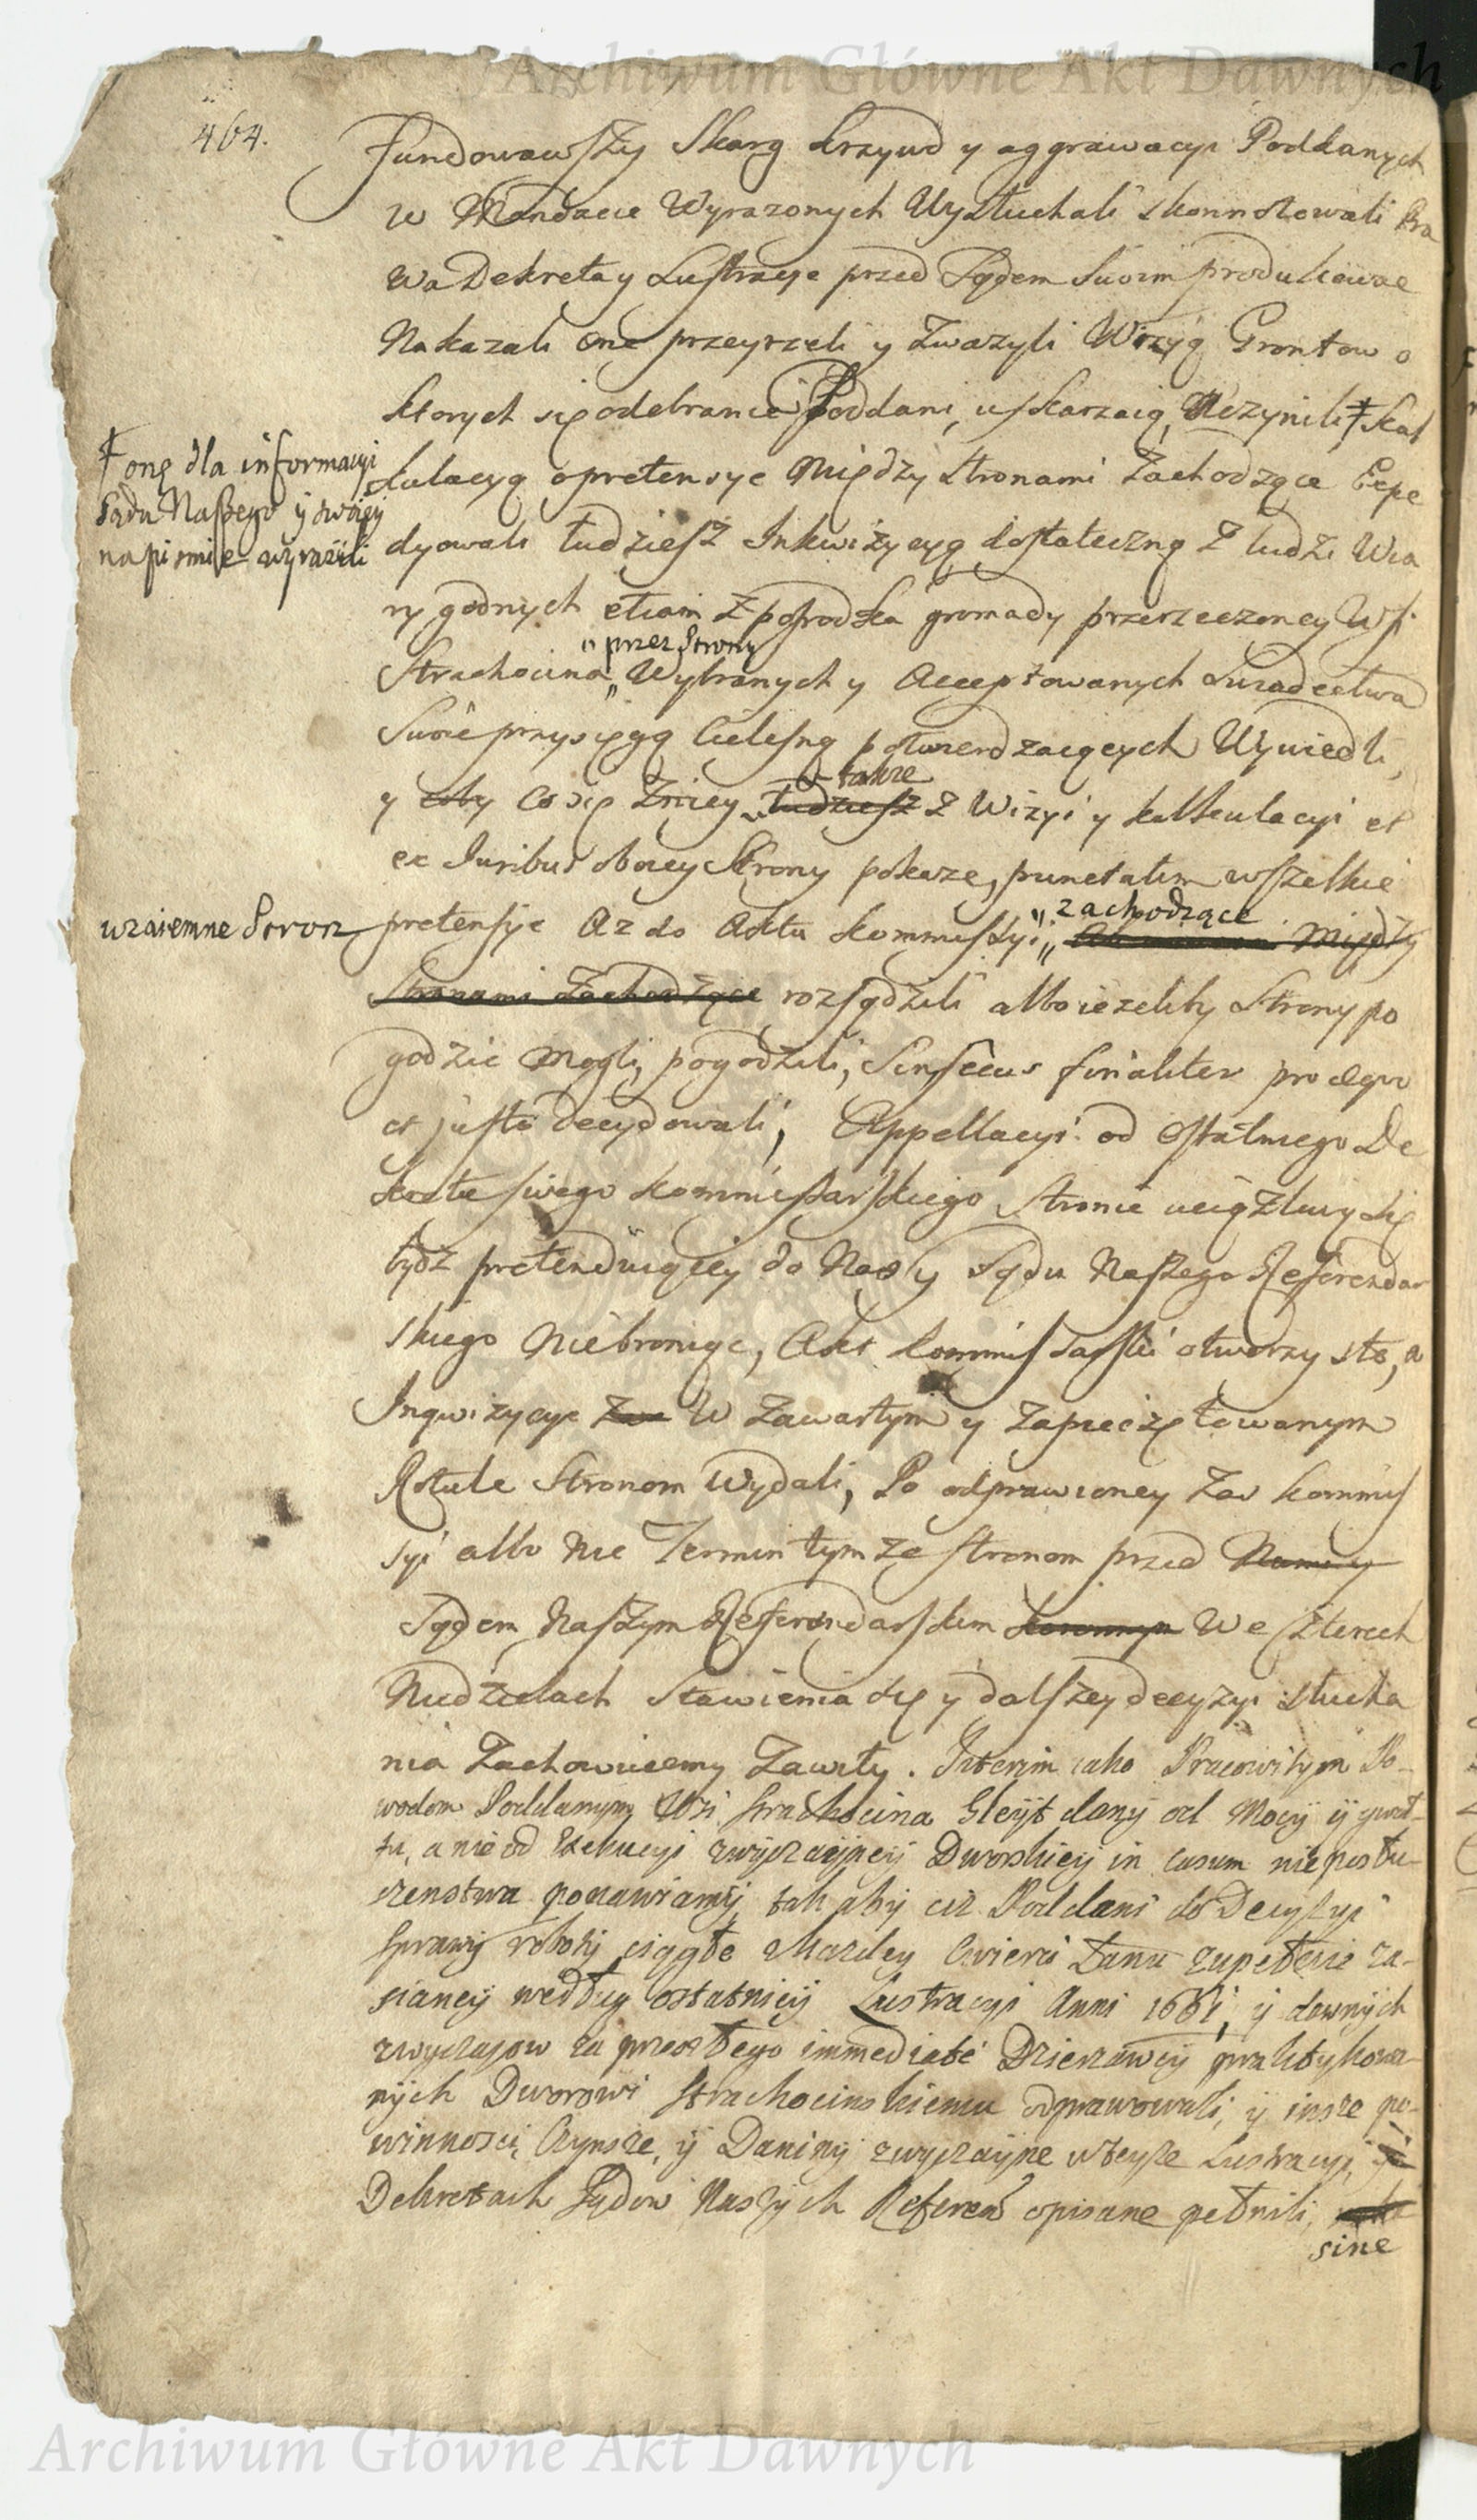 Archiwum Główne Akt Dawnych
464.
Fundowawszy Skarg krzywd y aggrawacyi Poddanych
w Mandacie Wyrazonych Wysłuchali skonnotowali Pra
wa Dekreta y Lustracye przed Sądem Swoim produkowac
Nakazali one przeyrzeli y Zwazyli Wizyą Grontow o
ktorych się odebranie Poddani uskarzaią Uczynili ‡ kal
‡ onę dla informacyi
Sądu Naszego ÿ swoięy
na pismie wyrazili
kulacyą o pretensye Między Stronami Zachodzące Expe
dyowali tudziesz Inkwizycyą dostateczną z ludzi Wia
ry godnych etiam z posrodka gromady przerzeczoney Wsi
" przez Strony
Strachocina " Wybranych y Acceptowanych Swiadectwa
Swoie przysięgą Cielesną potwierdzaiących Wywiedli,
takze
y coby Co się Zniey tudziesz z Wizyi y kalkulacyi et
ex Iuribus oboiey Strony pokaze, punctatim wszelkie
wzaiemne Stron
pretensye Az do Aktu Kommissyi " zachodzące Między
Stronami Zachodzące rozsądzili albo iezeliby Strony po
godzic Mogli, pogodzili, Sinsecus finaliter pro aequo
et justo decydowali, Appellacyi od Ostatniego De
kretu swego Kommissarskiego Stronie uciązliwy Się
bydz pretenduiącey do Nas y Sądu Naszego Referendar
skiego Niebroniąc, Akt Kommissarski otworzysto, a
Inqwizycye Zaw W Zawartym y Zapieczętowanym
Rotule Stronom Wydali, Po odprawioney Zas Kommis
syi albo Nie Termin tymze stronom przed Nami y
Sądem Naszym Referendarskim koronnym We Czterech
Niedzielach Stawienia się y dalszey decyzyi słucha
nia Zachowuiemy Zawity. Interim iako Pracowitym Po-
wodom Poddanym Wsi Strachocina Gleÿt danÿ od Mocÿ ÿ gwał-
tu, a nie od Exekucyi zwÿczaÿney Dworskieÿ in casum niepostu-
szenstwa ponawiamÿ, tak abÿ ciz Poddani do Decyzyi
Sprawÿ robotÿ ciągłe z kazdey Cwierci Łanu zupełnie za-
sianeÿ według ostatnieÿ Lustracyi Anni 1661, ÿ dawnÿch
zwyczaiow za przeszłego immediate Dzierzawcÿ praktykowa-
nÿch Dworowi Strachocinskiemu odprawowali, ÿ insze po-
winnosci, Czynsze, ÿ Daninÿ zwyczaÿne wteyze Lustracyi, ÿ w
Dekretach Sądow Naszÿch Referend opisane pełnili,
sine
Archiwum Główne Akt Dawnych